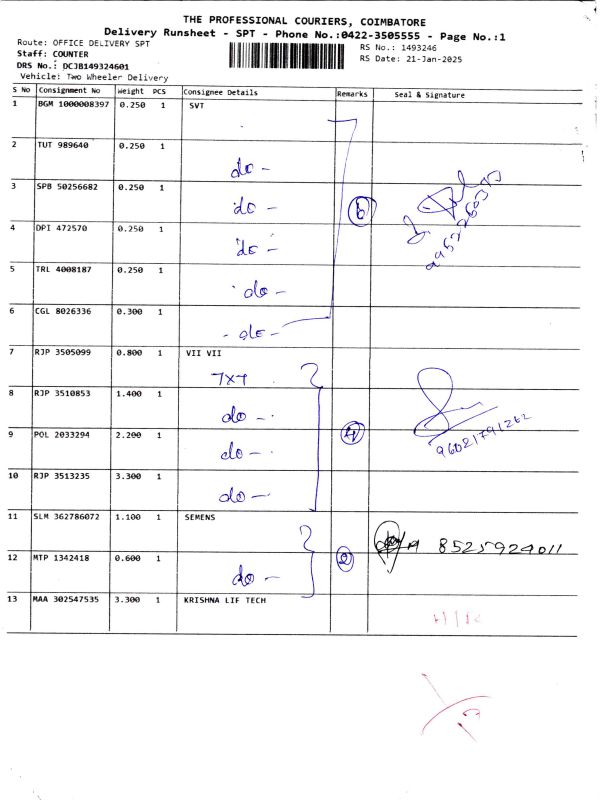 THE PROFESSIONAL COURIERS, COIMBATORE
Delivery Runsheet - SPT - Phone No.:0422-3505555 - Page No.:1
Route: OFFICE DELIVERY SPT
RS No.: 1493246
Staff: COUNTER
RS Date: 21-Jan-2025
DRS No.: DCJB149324601
Vehicle: Two Wheeler Delivery
S No Consignment No Weight PCS Consignee Details Remarks Seal & Signature
1 BGM 1000008397 0.250 1 SVT
2 TUT 989640 0.250 1
do -
3 SPB 50256682 0.250 1
do - 6
4 DPI 472570 0.250 1
do -
5 TRL 4008187 0.250 1
do -
6 CGL 8026336 0.300 1
- do -
7 RJP 3505099 0.800 1 VII VII
7x7
8 RJP 3510853 1.400 1
do -
9 POL 2033294 2.200 1 4
do - 96021791262
10 RJP 3513235 3.300 1
do -
11 SLM 362786072 1.100 1 SEMENS
8525924011
12 MTP 1342418 0.600 1 2
do -
13 MAA 302547535 3.300 1 KRISHNA LIF TECH